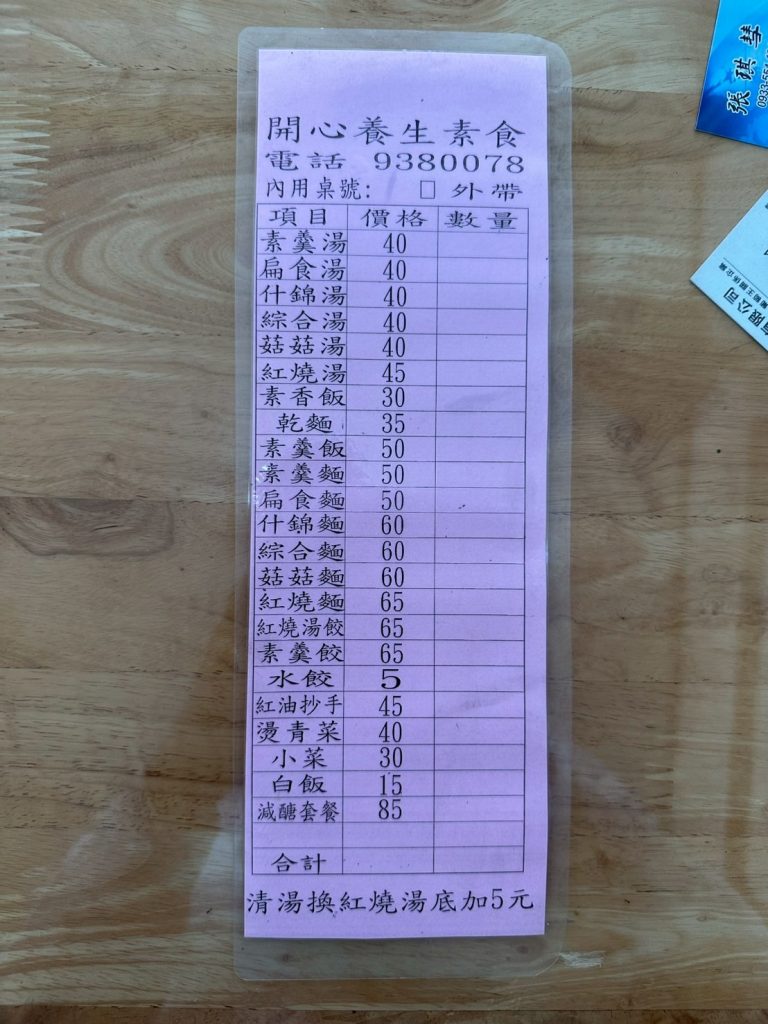 開心養生素食
電話 9380078
內用桌號: □ 外帶
項目 價格 數量
素羹湯 40
扁食湯 40
什錦湯 40
綜合湯 40
菇菇湯 40
紅燒湯 45
素香飯 30
乾麵 35
素羹飯 50
素羹麵 50
扁食麵 50
什錦麵 60
綜合麵 60
菇菇麵 60
紅燒麵 65
紅燒湯餃 65
素羹餃 65
水餃 5
紅油抄手 45
燙青菜 40
小菜 30
白飯 15
減醣套餐 85
合計
清湯換紅燒湯底加5元
張琪彗
有限公司